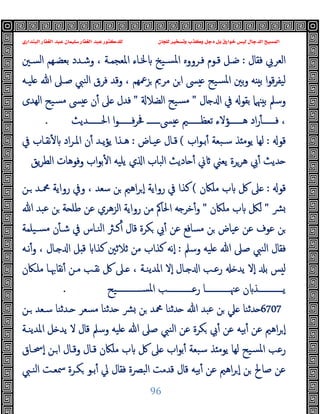 المسيح الدجال ليس خوارق بل دجل وكذب وتسخير للجان لدكتور عبد الغفار سليمان عبد الغفار البنداري
العربي فقال : ضل قوم فرووه المسيخ بالخاء المعجمة ، وشدد بعضهم السين
ليفرقوا بينه وبين المسيح عيسى ابن مريم بزعمهم ، وقد فرق النبي صلى الله عليه
وسلم بينهما بقوله في الدجال " مسيح الضلالة " فدل على أن عيسى مسيح الهدى
، فأراد هؤلاء تعظيم عيسى فحرفوا الحديث .
قوله : لها يومئذ سبعة أبواب ) قال عياض : هذا يؤيد أن المراد بالأنقاب في
حديث أبي هريرة يعني ثاني أحاديث الباب الذي يليه الأبواب وفوهات الطريق
قوله : على كل باب ملكان ) كذا في رواية إبراهيم بن سعد ، وفي رواية محمد بن
بشر " لكل باب ملكان " وأخرجه الحاكم من رواية الزهري عن طلحة بن عبد الله
بن عوف عن عياض بن مسافع عن أبي بكرة قال أكثر الناس في شأن مسيلمة
فقال النبي صلى الله عليه وسلم : إنه كذاب من ثلاثين كذابا قبل الدجال ، وأنه
ليس بلد إلا يدخله رعب الدجال إلا المدينة ، على كل نقب من أنقابها ملكان
يذبان عنها رعب المسيح .
6707حدثنا علي بن عبد الله حدثنا محمد بن بشر حدثنا مسعر حدثنا سعد بن
إبراهيم عن أبيه عن أبي بكرة عن النبي صلى الله عليه وسلم قال لا يدخل المدينة
رعب المسيح لها يومئذ سبعة أبواب على كل باب ملكان قال وقال ابن إسحاق
عن صالح بن إبراهيم عن أبيه قال قدمت البصرة فقال لي أبو بكرة سمعت النبي
96